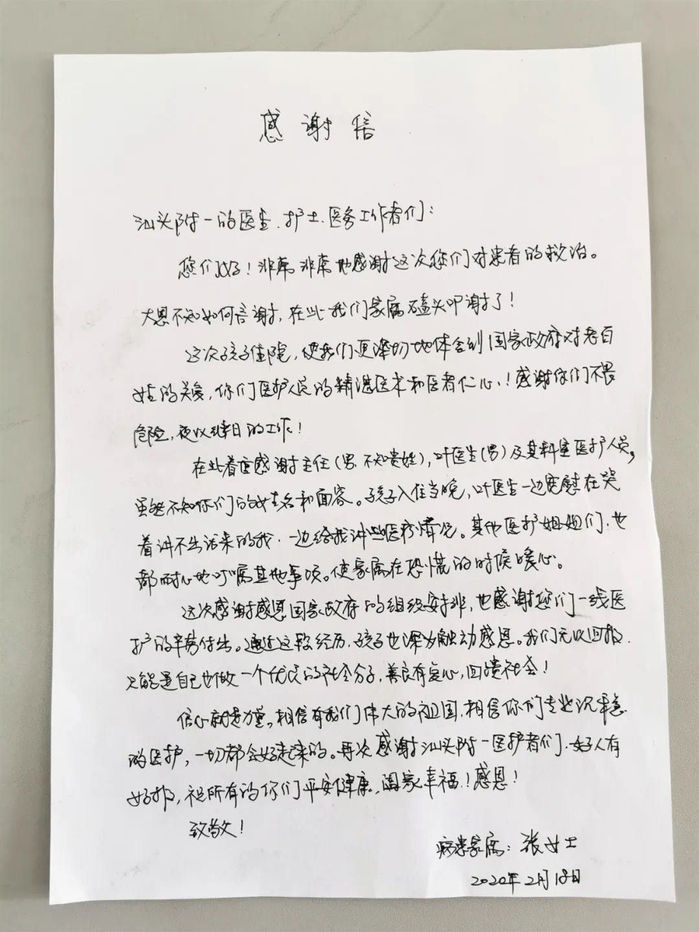 感谢信
汕头附一的医生、护士、医务工作者们：
您们好！非常非常地感谢这次您们对患者的救治。
大恩不知如何言谢，在此我们家属磕头叩谢了！
这次孩子住院，使我们更深切地体会到国家政府对老百
姓的关爱，你们医护人民的精湛医术和医者仁心！感谢你们不畏
危险，夜以继日的工作！
在此着重感谢主任（男，不知贵姓），叶医生（男）及其科室医护人员，
虽然不知你们的姓名和面容。孩子入住当晚，叶医生一边宽慰在哭
着讲不出话来的我，一边给我讲些医疗情况。其他医护姐姐们，也
都耐心地叮嘱其他事项。使家属在恐慌的时候暖心。
这次感谢感恩国家政府的组织安排，也感谢您们一线医
护的辛勤付出。通过这段经历，孩子也深为触动感恩。我们无以回报，
只能是自己也做一个优良的社会分子，善良有爱心，回馈社会！
信心就是力量，相信有我们伟大的祖国，相信你们专业沉着
的医护，一切都会好起来的。再次感谢汕头附一医护者们，好人有
好报，祝所有的你们平安健康，阖家幸福！感恩！
致敬！
病患家属：张女士
2020年2月18日